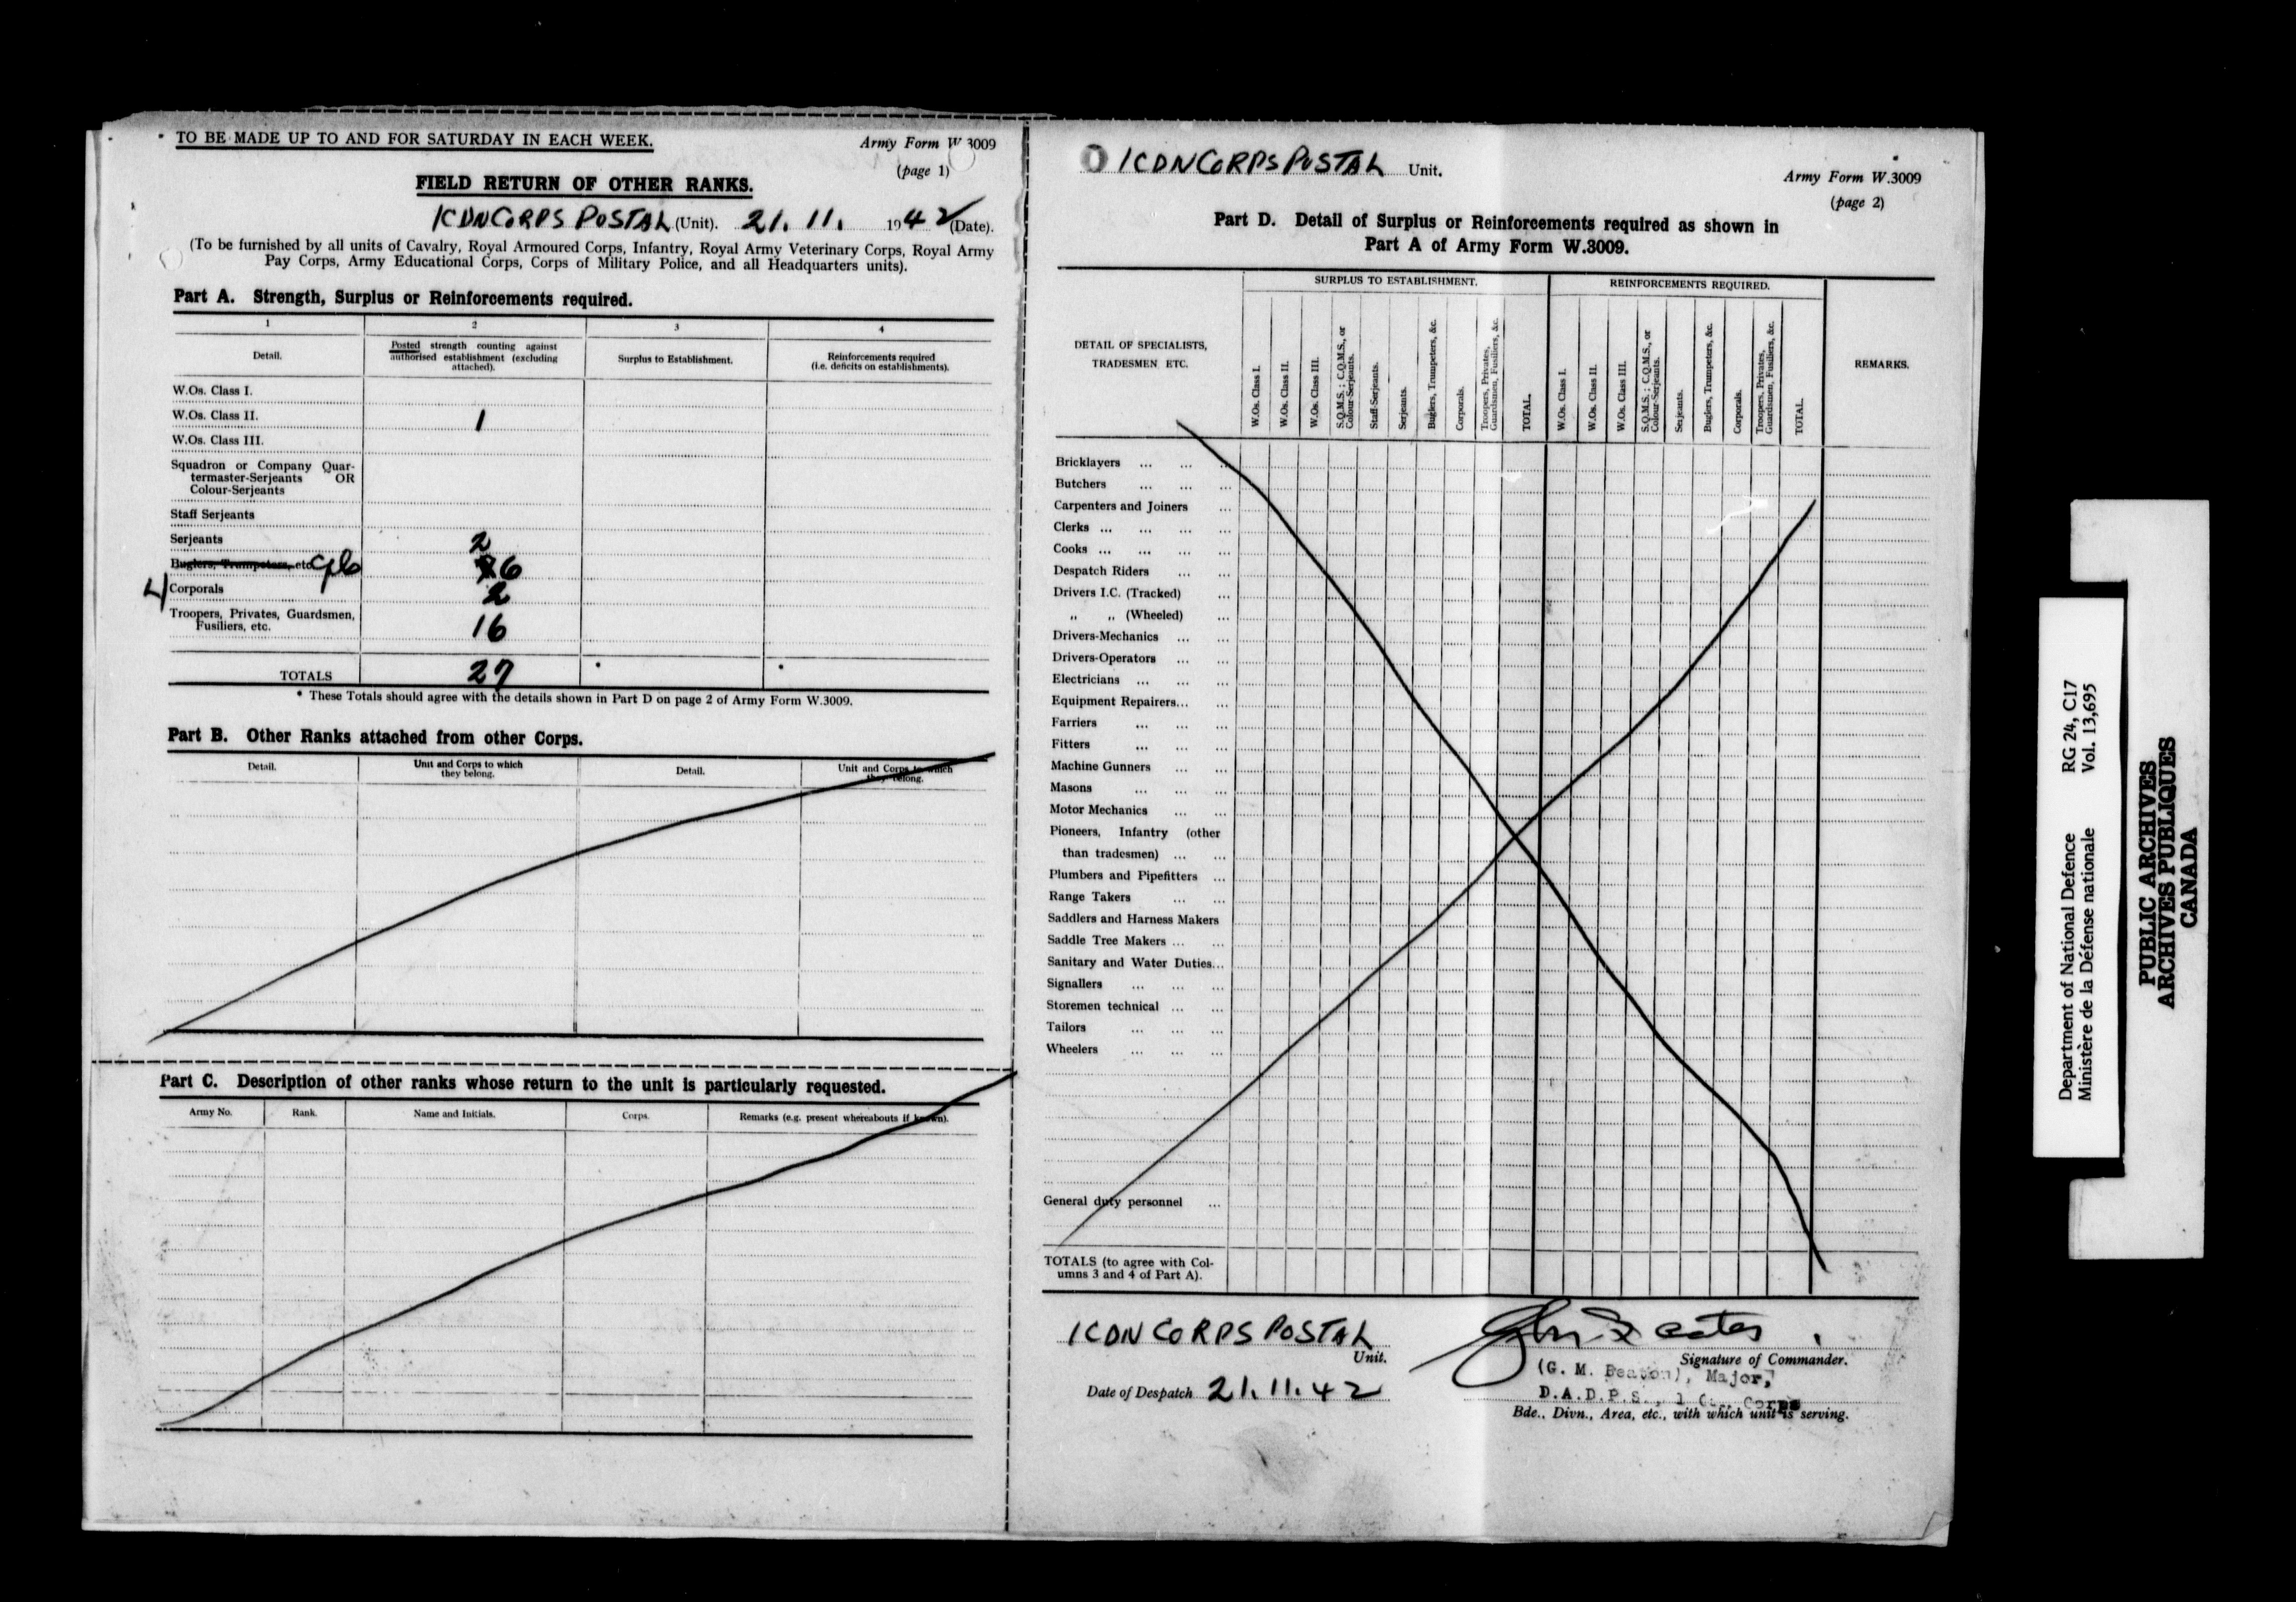 TO BE MADE UP TO AND FOR SATURDAY IN EACH WEEK.
Army Form W 3009
(page 1)
FIELD RETURN OF OTHER RANKS.
1 CDN CORPS POSTAL (Unit). 21. 11. 1942 (Date).
(To be furnished by all units of Cavalry, Royal Armoured Corps, Infantry, Royal Army Veterinary Corps, Royal Army
Pay Corps, Army Educational Corps, Corps of Military Police, and all Headquarters units).
Part A. Strength, Surplus or Reinforcements required.
1 2 3 4
Detail.
Posted strength counting against
authorised establishment (excluding
attached).
Surplus to Establishment.
Reinforcements required
(i.e. deficits on establishments).
W.Os. Class I.
W.Os. Class II. 1
W.Os. Class III.
Squadron or Company Quar-
termaster-Serjeants OR
Colour-Serjeants
Staff Serjeants
Serjeants 2
Buglers, Trumpeters, etc. Cpls 6
L/Corporals 2
Troopers, Privates, Guardsmen,
Fusiliers, etc. 16
TOTALS 27 * *
* These Totals should agree with the details shown in Part D on page 2 of Army Form W.3009.
Part B. Other Ranks attached from other Corps.
Detail.
Unit and Corps to which
they belong.
Detail.
Unit and Corps to which
they belong.
Part C. Description of other ranks whose return to the unit is particularly requested.
Army No. Rank. Name and Initials. Corps. Remarks (e.g. present whereabouts if known).
1 CDN CORPS POSTAL Unit.
Army Form W.3009
(page 2)
Part D. Detail of Surplus or Reinforcements required as shown in
Part A of Army Form W.3009.
DETAIL OF SPECIALISTS,
TRADESMEN ETC.
SURPLUS TO ESTABLISHMENT.
REINFORCEMENTS REQUIRED.
REMARKS.
W.Os. Class I.
W.Os. Class II.
W.Os. Class III.
S.Q.M.S.; C.Q.M.S., or
Colour-Serjeants.
Staff-Serjeants.
Serjeants.
Buglers, Trumpeters, &c.
Corporals.
Troopers, Privates,
Guardsmen, Fusiliers, &c.
TOTAL.
W.Os. Class I.
W.Os. Class II.
W.Os. Class III.
S.Q.M.S.; C.Q.M.S., or
Colour-Serjeants.
Serjeants.
Buglers, Trumpeters, &c.
Corporals.
Troopers, Privates,
Guardsmen, Fusiliers, &c.
TOTAL.
Bricklayers ... ... ...
Butchers ... ... ...
Carpenters and Joiners ...
Clerks ... ... ... ...
Cooks ... ... ... ...
Despatch Riders ... ...
Drivers I.C. (Tracked) ...
„ „ (Wheeled) ...
Drivers-Mechanics ... ...
Drivers-Operators ... ...
Electricians ... ... ...
Equipment Repairers... ...
Farriers ... ... ...
Fitters ... ... ...
Machine Gunners ... ...
Masons ... ... ...
Motor Mechanics ... ...
Pioneers, Infantry (other
than tradesmen) ... ...
Plumbers and Pipefitters ...
Range Takers ... ...
Saddlers and Harness Makers
Saddle Tree Makers ... ...
Sanitary and Water Duties...
Signallers ... ... ...
Storemen technical ... ...
Tailors ... ... ...
Wheelers ... ... ...
General duty personnel ...
TOTALS (to agree with Col-
umns 3 and 4 of Part A).
1 CDN CORPS POSTAL
Unit.
Signature of Commander.
(G. M. Beaton), Major,
Date of Despatch 21.11.42
D.A.D.P.S., 1 Corps
Bde., Divn., Area, etc., with which unit is serving.
Department of National Defence RG 24, C17
Ministère de la Défense nationale Vol. 13,695
PUBLIC ARCHIVES
ARCHIVES PUBLIQUES
CANADA